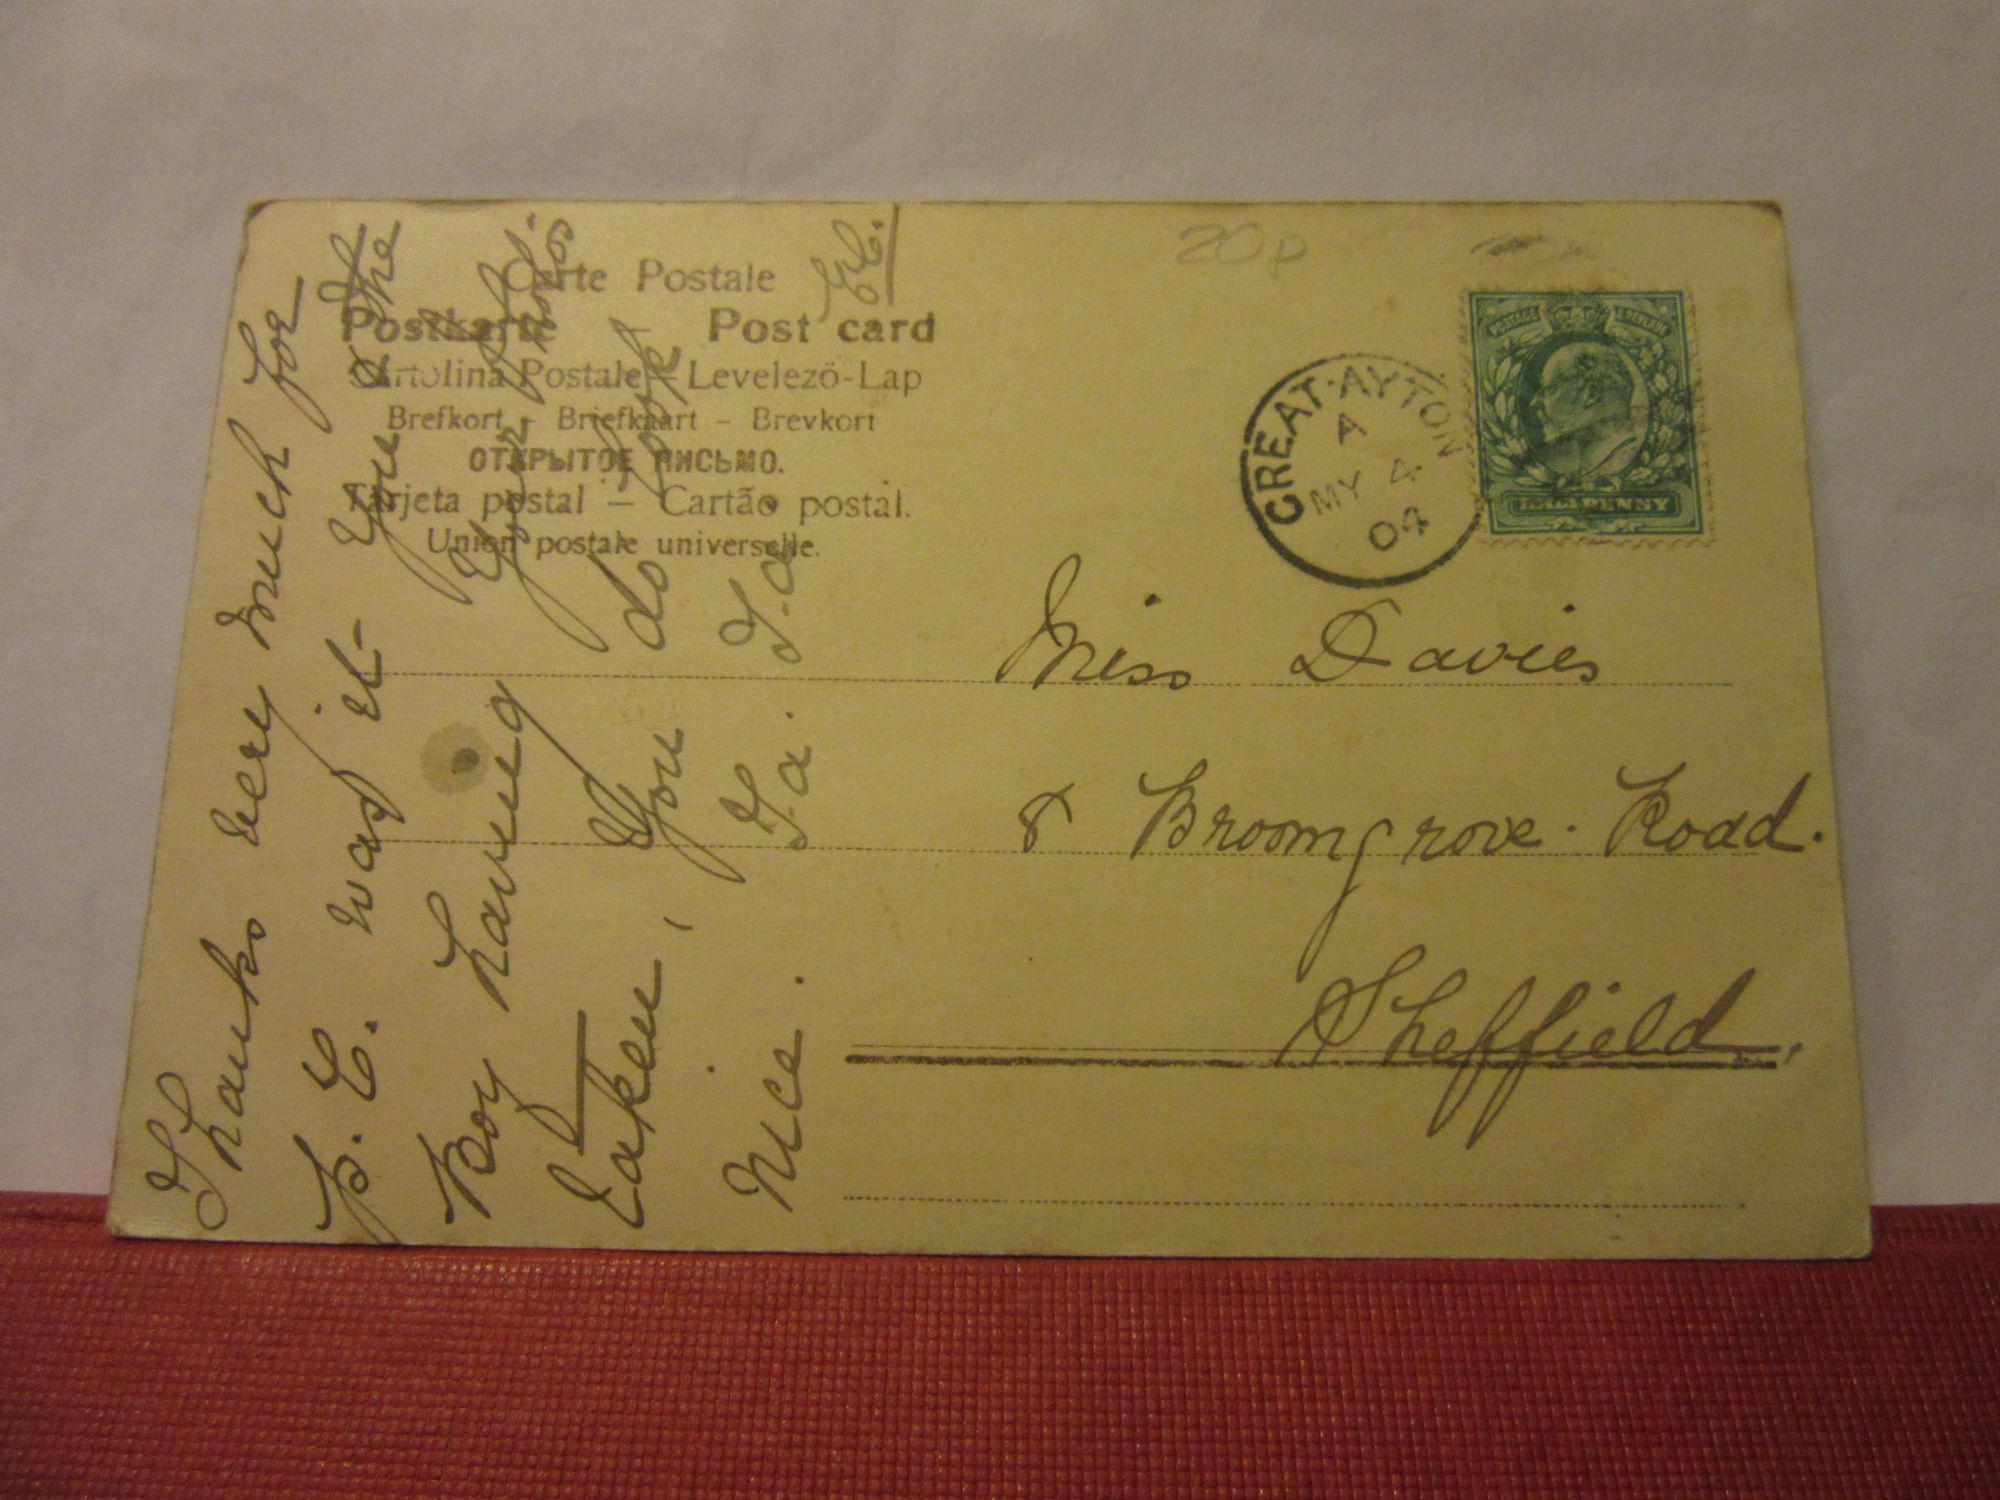 Carte Postale
Postkarte Post card
Cartolina Postale – Levelezö-Lap
Brefkort – Briefkaart – Brevkort
ОТКРЫТОЕ ПИСЬМО.
Tarjeta postal – Cartão postal.
Union postale universelle.
20p
GREAT·AYTON
A
MY 4
04
POSTAGE & REVENUE
HALFPENNY
Miss Davies
8 Broomgrove Road.
Sheffield.
Thanks very much for
P.C. was it you the
Boy having your
taken, you do look
nice. Ta. Ta